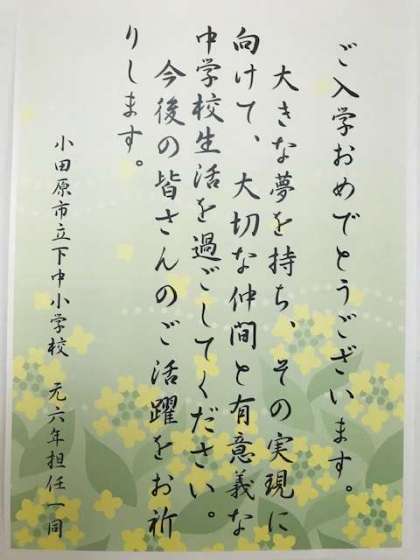 ご入学おめでとうございます。
大きな夢を持ち、その実現に
向けて、大切な仲間と有意義な
中学校生活を過ごしてください。
今後の皆さんのご活躍をお祈
りします。
小田原市立下中小学校 元六年担任一同